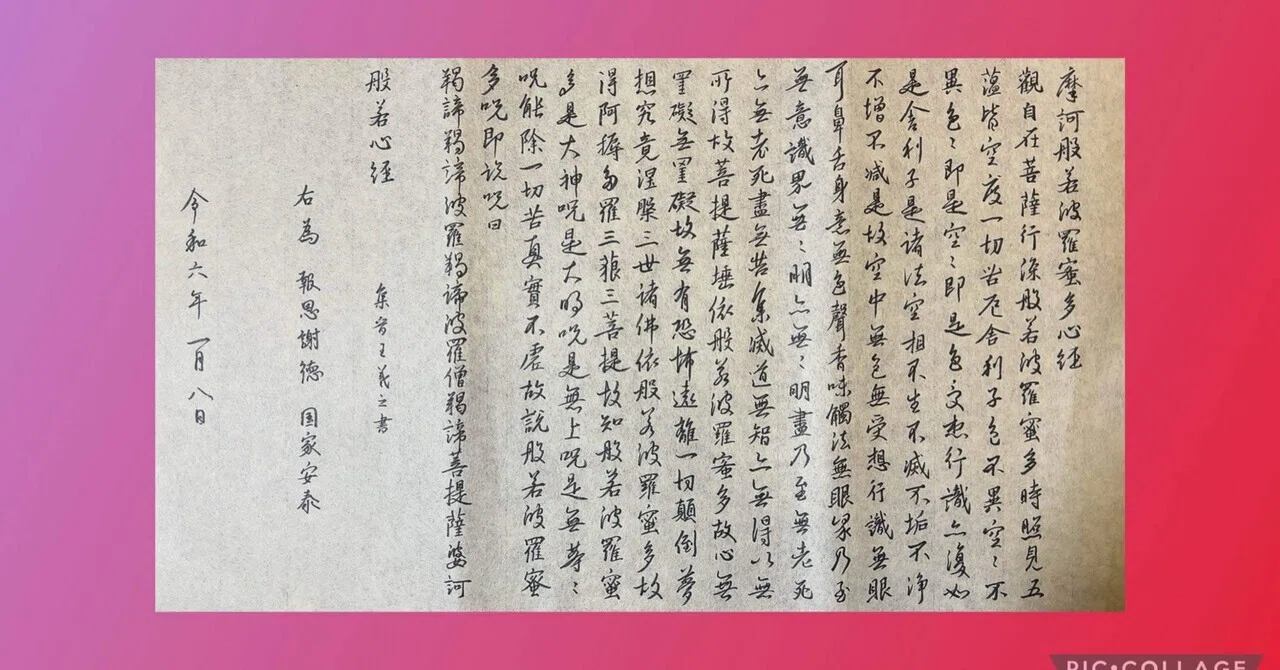 摩訶般若波羅蜜多心経
觀自在菩薩行深般若波羅蜜多時照見五
蘊皆空度一切苦厄舎利子色不異空〻不
異色〻即是空〻即是色受想行識亦復如
是舎利子是諸法空相不生不滅不垢不浄
不增不減是故空中無色無受想行識無眼
耳鼻舌身意無色聲香味觸法無眼界乃至
無意識界無〻明亦無〻明盡乃至無老死
亦無老死盡無苦集滅道無智亦無得以無
所得故菩提薩埵依般若波羅蜜多故心無
罣礙無罣礙故無有恐怖遠離一切顛倒夢
想究竟涅槃三世諸佛依般若波羅蜜多故
得阿耨多羅三藐三菩提故知般若波羅蜜
多是大神呪是大明呪是無上呪是無等〻
呪能除一切苦真實不虚故説般若波羅蜜
多呪即説呪曰
羯諦羯諦波羅羯諦波羅僧羯諦菩提薩婆訶
般若心経
集晉王羲之書
右為 報恩謝徳 国家安泰
令和六年一月八日
PIC•COLLAGE